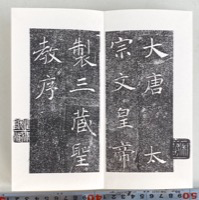 大唐 太
宗文皇帝
製三蔵聖
教序